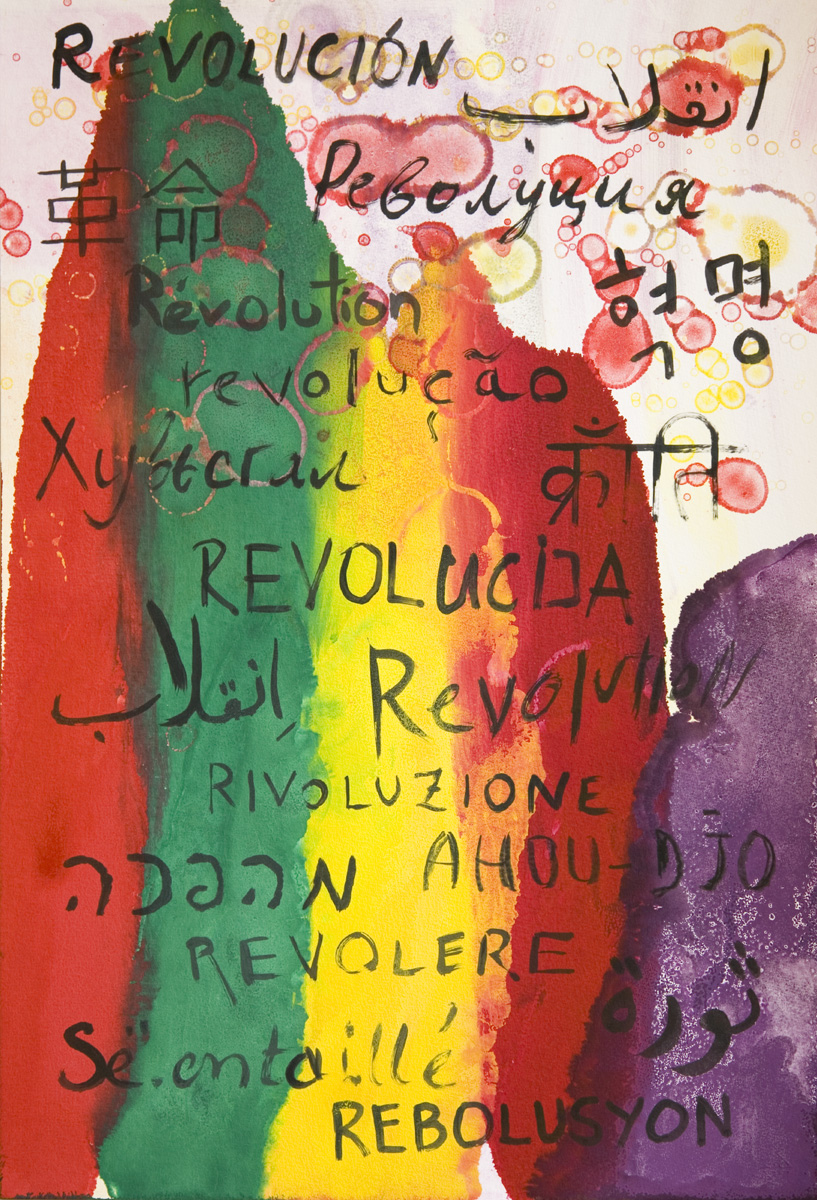 REVOLUCIÓN
انقلاب
革命
Револуция
Révolution
혁명
revolução
Хувьсгал
क्राँति
REVOLUCIJA
إنقلاب
Revolution
RIVOLUZIONE
AHOU-DJO
מהפכה
REVOLERE
ثورة
Së.entaillé
REBOLUSYON